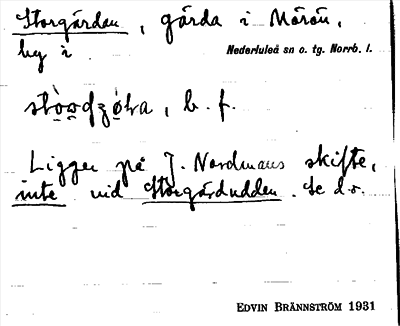 Storgården, gärda i Mörön,
by i.
Nederluleå sn o. tg. Norrb. l.
b. f.
Ligger på J. Nordmans skifte,
inte vid Storgårdudden. Se d.o.
EDVIN BRÄNNSTRÖM 1931